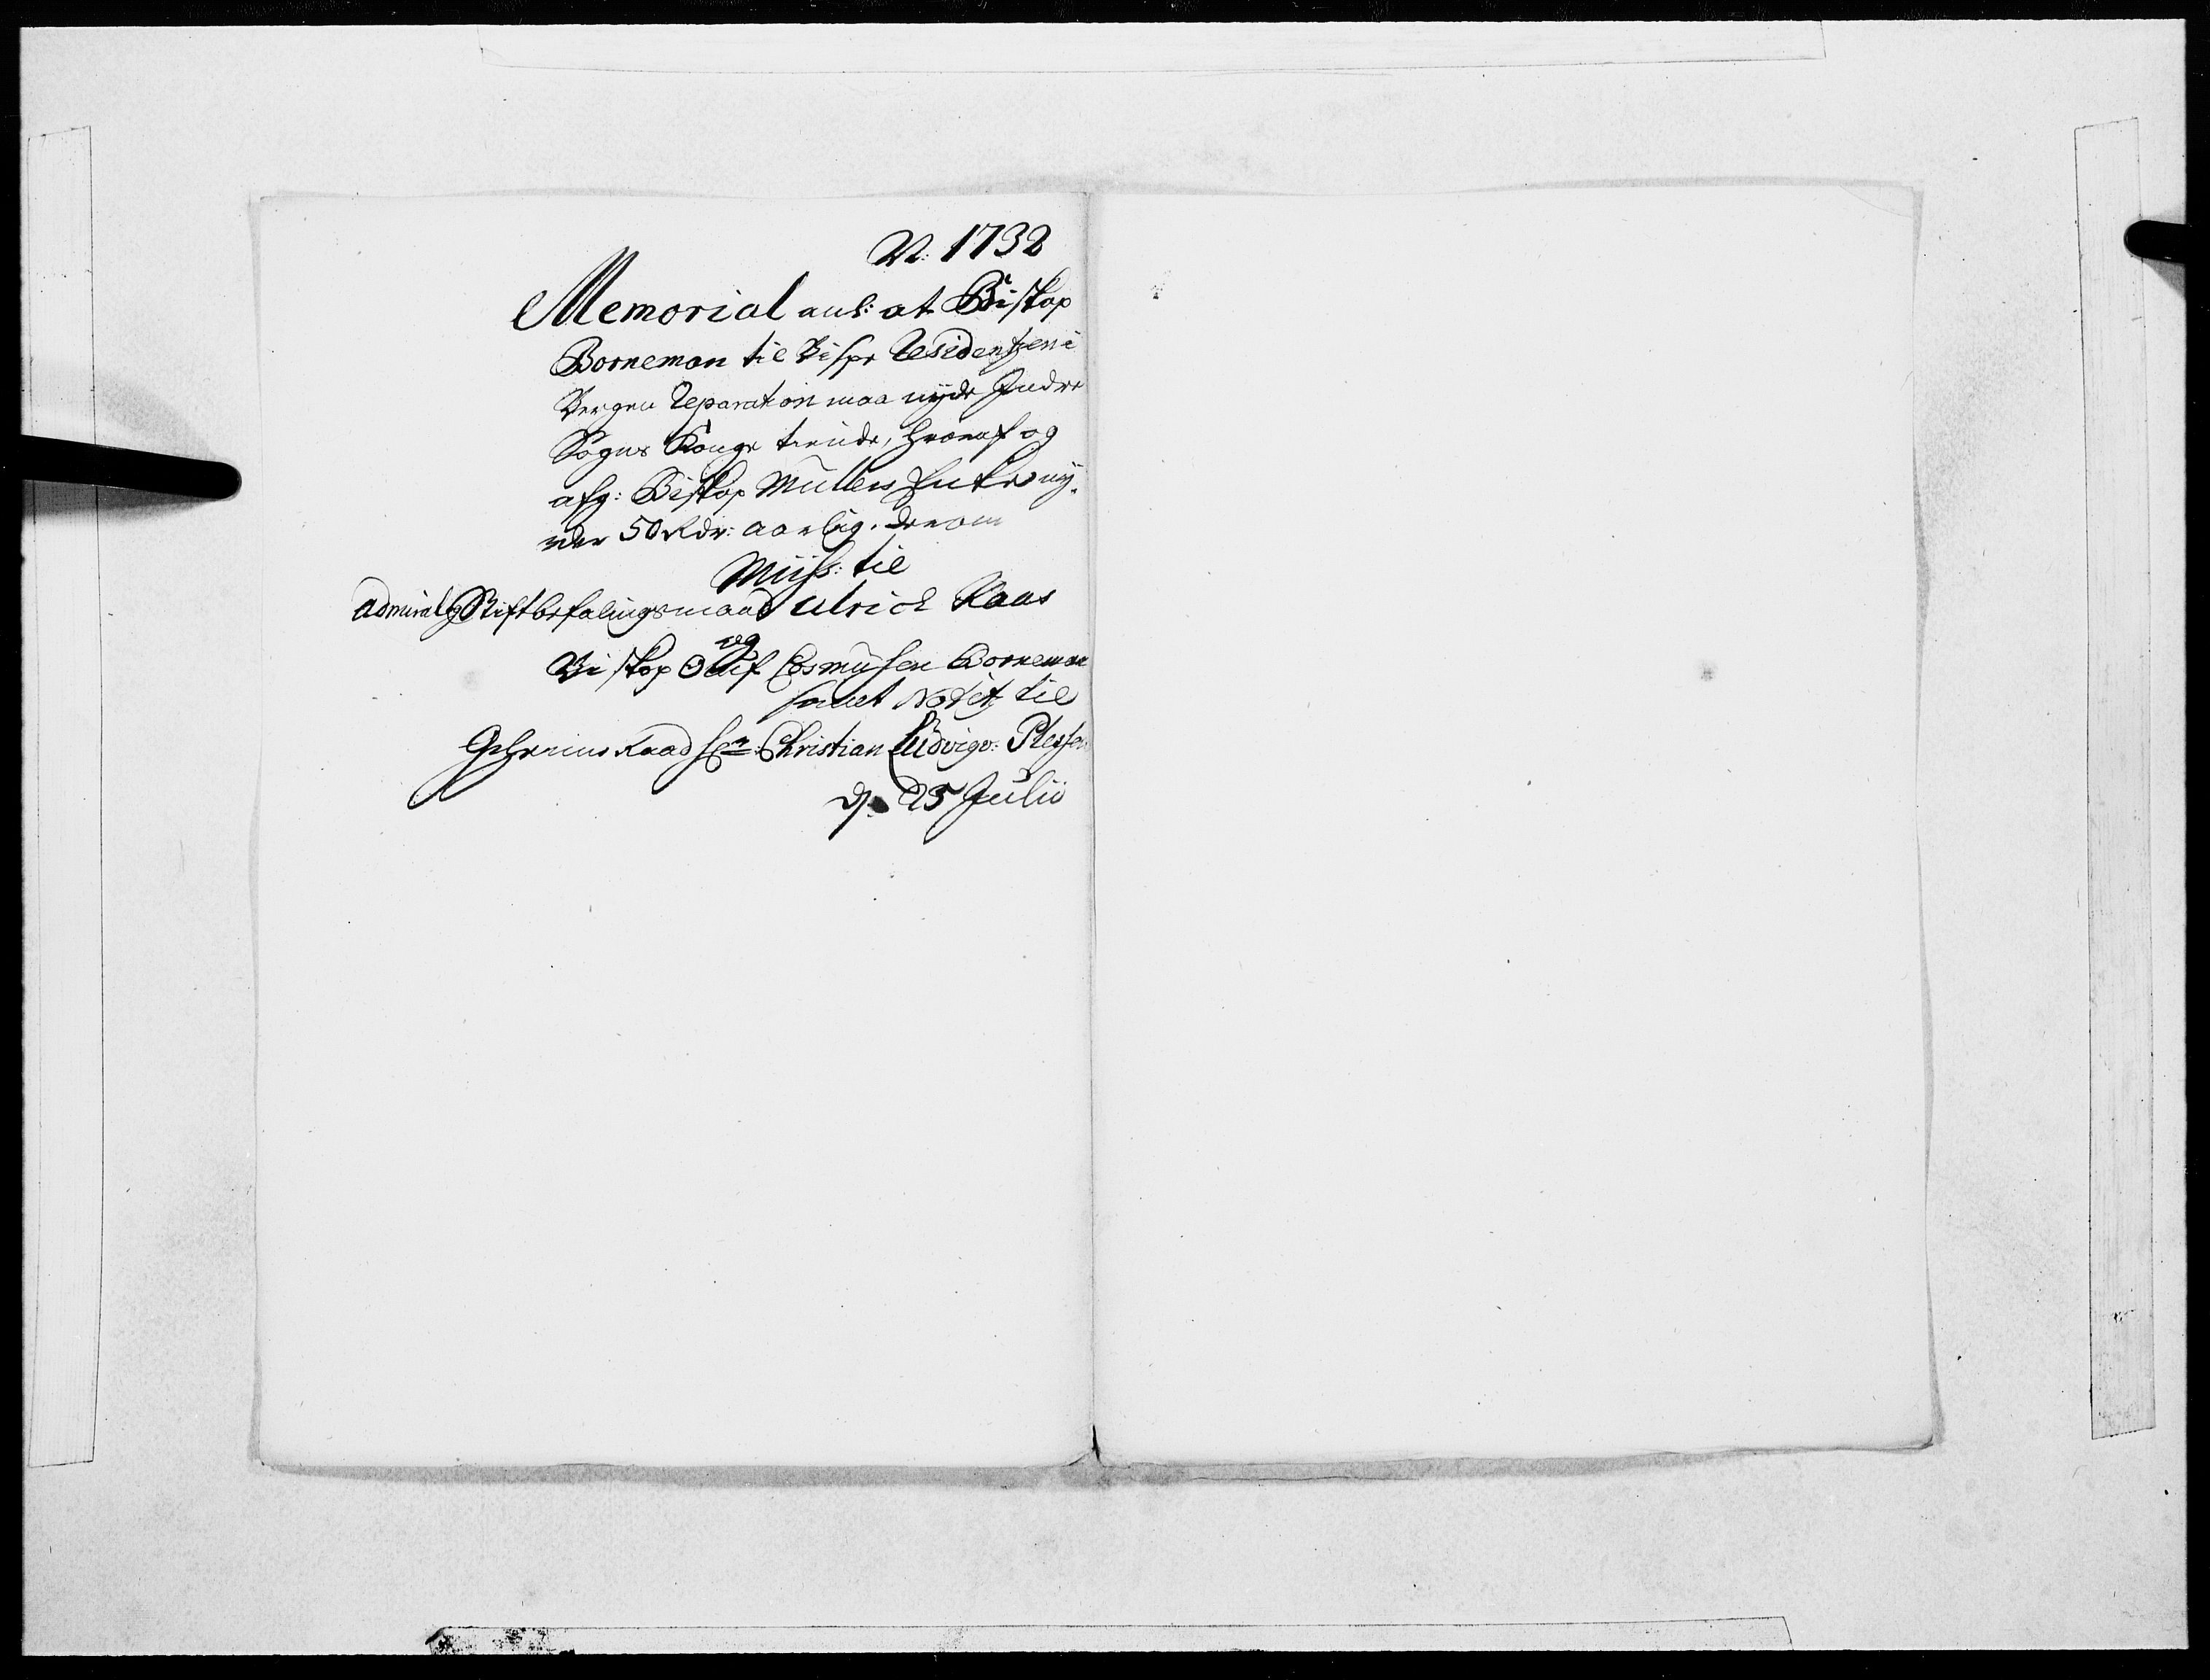 N: 1732
Memorial anl: at Biskop
Borneman til Bispe Residentzen i
Bergen Reparation maa nyde Indre
Sogns Konge tiende, hvoraf og
afg: Biskop Müllers Enke ny-
der 50 Rdr: aarlig. derom
Miss: til
Admiral og Stiftbefalingsmand Ulrich Kaas
og
Biskop Oluf Cosmusen Borneman
samt Notitz til
Geheime Raad Hr: Christian Ludvig v: Plessen
d. 25 Julii